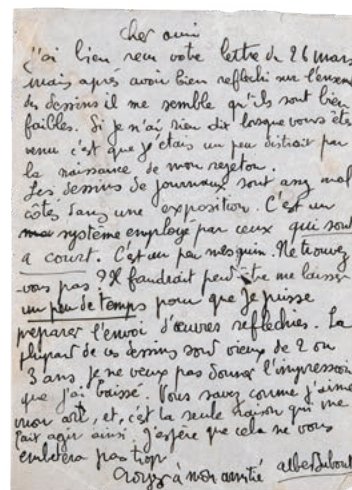 cher ami
J'ai bien reçu votre lettre du 26 mars
mais après avoir bien reflechi sur l'ensem
des dessins il me semble qu'ils sont bien
faibles. Si je n'ai rien dit lorsque vous êtes
venu c'est que j'étais un peu distrait par
la naissance de mon rejeton.
Les dessins de journaux sont assez mal
côtés dans une exposition. C'est un
système employé par ceux qui sont
a court. C'est un peu mesquin. Ne trouvez
-vous pas ? Il faudrait peut être me laisser
un peu de temps pour que je puisse
préparer l'envoi d'œuvres reflechies. La
plupart de ces dessins sont vieux de 2 ou
3 ans. Je ne veux pas donner l'impression
que j'ai baissé. Vous savez comme j'aime
mon art, et, c'est la seule raison qui me
fait agir ainsi. J'espère que cela ne vous
embêtera pas trop
Croyez à mon amitié albert Dubout